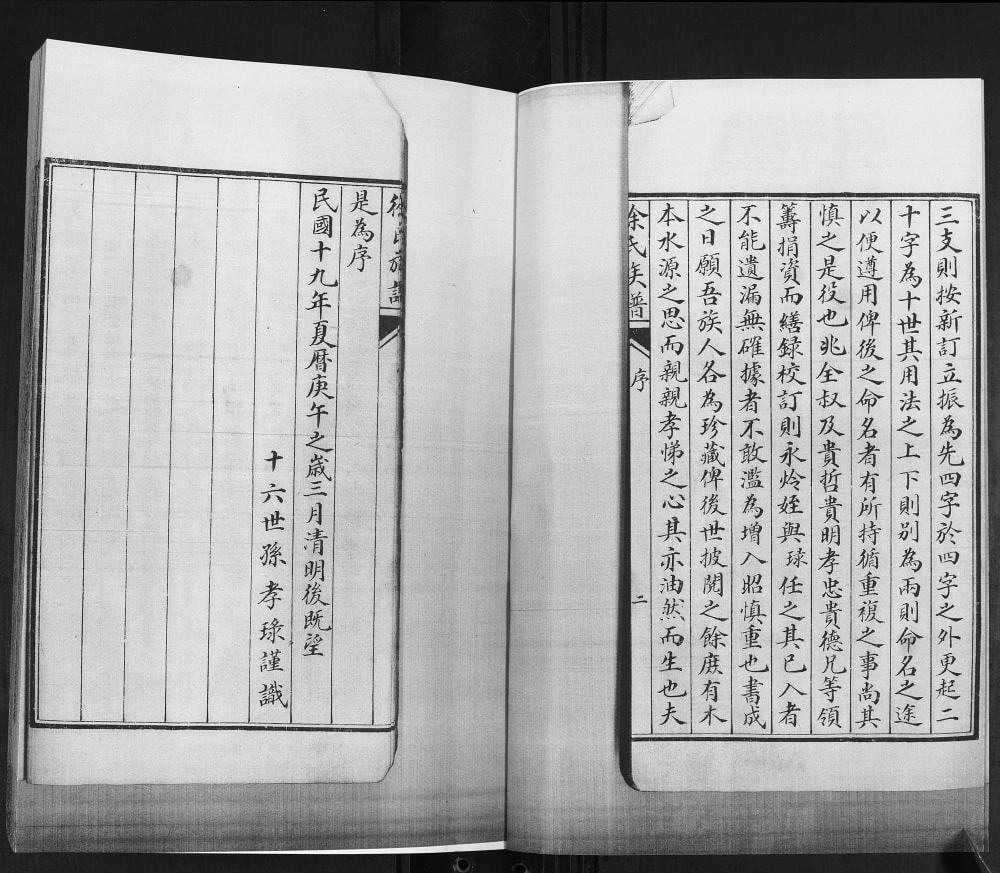 三支則按新訂立振為先四字於四字之外更起二
十字為十世其用法之上下則别為兩則命名之途
以便遵用俾後之命名者有所持循重複之事尚其
慎之是役也兆全叔及貴哲貴明孝忠貴德兄等領
籌捐資而繕録校訂則永焓姪與球任之其已入者
不能遺漏無確據者不敢濫為增入昭慎重也書成
之日願吾族人各為珍藏俾後世披閱之餘庶有木
本水源之思而親親孝悌之心其亦油然而生也夫
徐氏族譜
序
二
徐氏族譜
是為序
民國十九年夏曆庚午之歲三月清明後既望
十六世孫孝球謹識